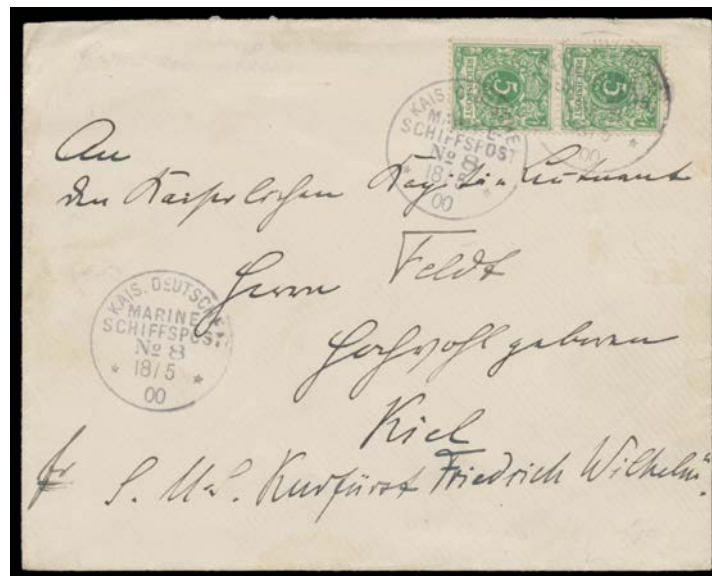 5 5
KAIS. DEUTSCHE
MARINE
SCHIFFSPOST
No 8
* 18/5 *
00
An
den Kaiserlichen Kapitän-Leutnant
Herrn Feldt
Hochwohlgeboren
Kiel
KAIS. DEUTSCHE
MARINE
SCHIFFSPOST
No 8
* 18/5 *
00
S. M. S. Kurfürst Friedrich Wilhelm".